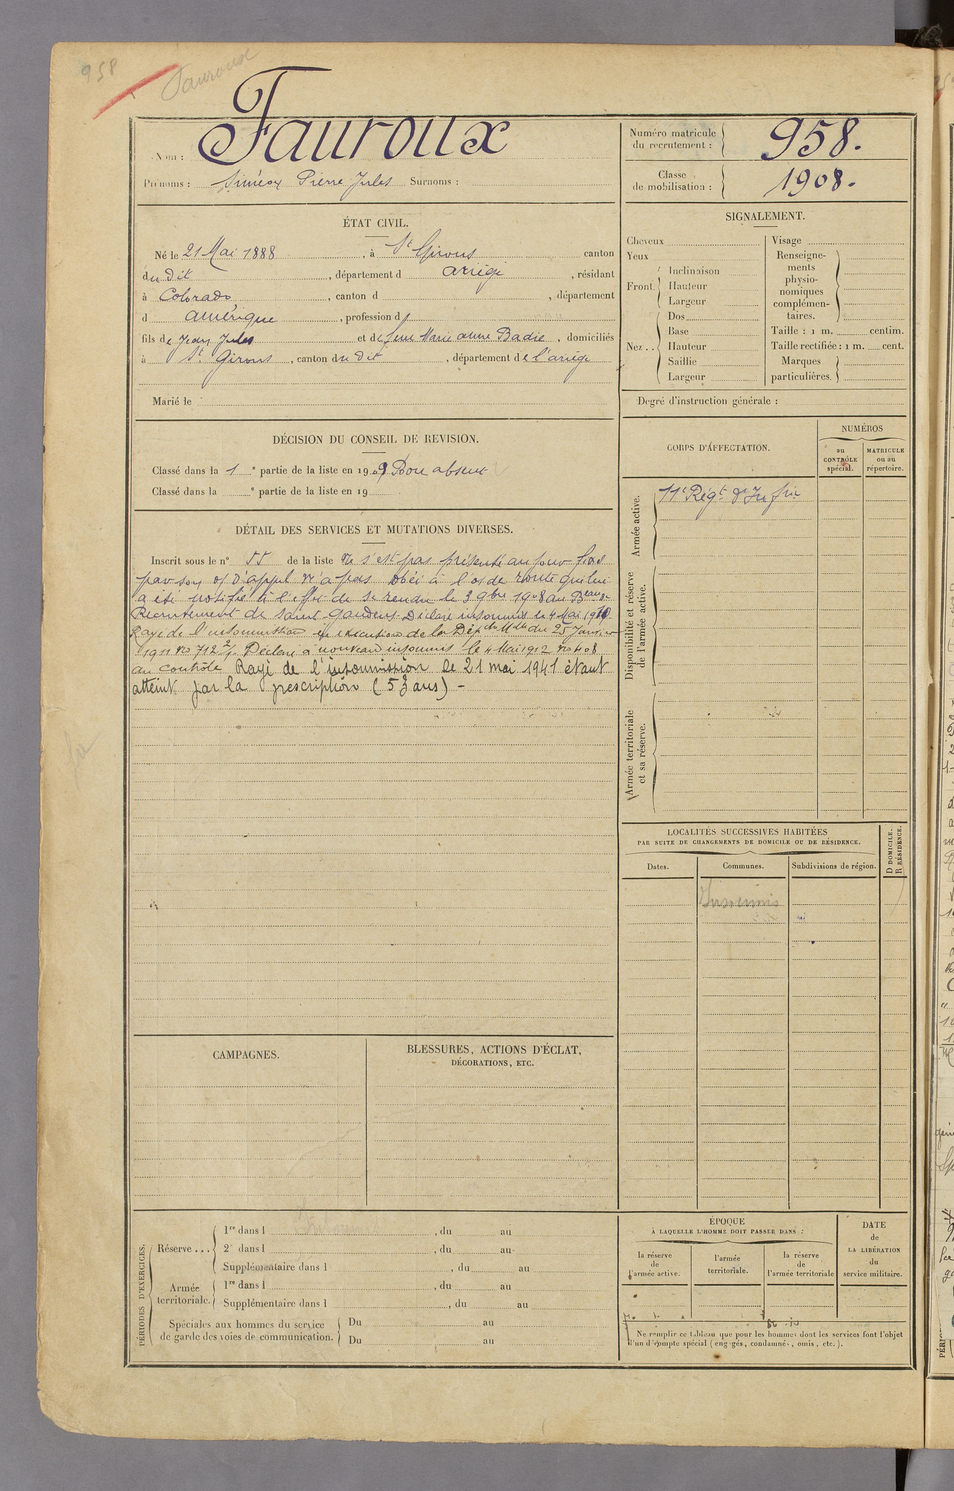 958
Fauroux
Nom : Fauroux
Prénoms : Siméon Pierre Jules Surnoms :
Numéro matricule du recrutement : 958.
Classe de mobilisation : 1908.
ÉTAT CIVIL.
Né le 21 Mai 1888, à St Girons canton
du dit, département d ariège, résidant
à Colorado, canton d , département
d amérique, profession d
fils de Jean Jules et de Marie anne Badie, domiciliés
à St Girons, canton du dit, département de l'ariège
Marié le
SIGNALEMENT.
Cheveux
Yeux
Front
Inclinaison
Hauteur
Largeur
Nez..
Dos
Base
Hauteur
Saillie
Largeur
Visage
Renseigne-
ments
physio-
nomiques
complémen-
taires.
Taille : 1 m. centim.
Taille rectifiée : 1 m. cent.
Marques
particulières.
Degré d'instruction générale :
DÉCISION DU CONSEIL DE REVISION.
Classé dans la 1e partie de la liste en 1909 Bon absent
Classé dans la e partie de la liste en 19
CORPS D'AFFECTATION.
NUMÉROS
au
CONTRÔLE
spécial.
MATRICULE
ou au
répertoire.
Armée active.
11e Régt d'Infie
Disponibilité et réserve
de l'armée active.
Armée territoriale
et sa réserve.
DÉTAIL DES SERVICES ET MUTATIONS DIVERSES.
Inscrit sous le n° 55 de la liste Ne s'est pas présenté au jour fixé
par son o/ d'appel N'a pas obéi à l'o/ de route qui lui
a été notifié à l'effet de se rendre le 3 9bre 1908 au Bureau
Recrutement de Saint Gaudens. Déclaré insoumis le 4 Mai 1910
Rayé de l'insoumission en exécution de la Dép. Mlle du 25 Janvier
1911 no 712 2/ Déclaré à nouveau insoumis le 4 Mai 1912 No 408
au contrôle. Rayé de l'insoumission le 21 mai 1941 étant
atteint par la prescription (53 ans) -
LOCALITÉS SUCCESSIVES HABITÉES
PAR SUITE DE CHANGEMENTS DE DOMICILE OU DE RÉSIDENCE.
Dates.
Communes.
Subdivisions de région.
D DOMICILE.
R RÉSIDENCE.
Insoumis
CAMPAGNES.
BLESSURES, ACTIONS D'ÉCLAT,
DÉCORATIONS, ETC.
PÉRIODES D'EXERCICES.
Réserve ...
1re dans l , du au
2e dans l , du au
Supplémentaire dans l , du au
Armée
territoriale.
1re dans l , du au
Supplémentaire dans l , du au
Spéciales aux hommes du service
de garde des voies de communication.
Du au
Du au
ÉPOQUE
À LAQUELLE L'HOMME DOIT PASSER DANS :
la réserve
de
l'armée active.
l'armée
territoriale.
la réserve
de
l'armée territoriale
DATE
de
LA LIBÉRATION
du
service militaire.
Ne remplir ce tableau que pour les hommes dont les services font l'objet
d'un décompte spécial (engagés, condamnés, omis, etc.).